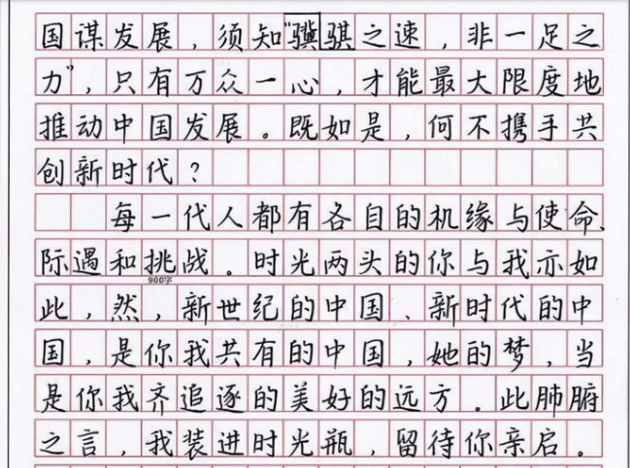 国谋发展，须知"骥骐之速，非一足之
力"，只有万众一心，才能最大限度地
推动中国发展。既如是，何不携手共
创新时代？
每一代人都有各自的机缘与使命、
际遇和挑战。时光两头的你与我亦如
900字
此，然，新世纪的中国、新时代的中
国，是你我共有的中国，她的梦，当
是你我齐追逐的美好的远方。此肺腑
之言，我装进时光瓶，留待你亲启。